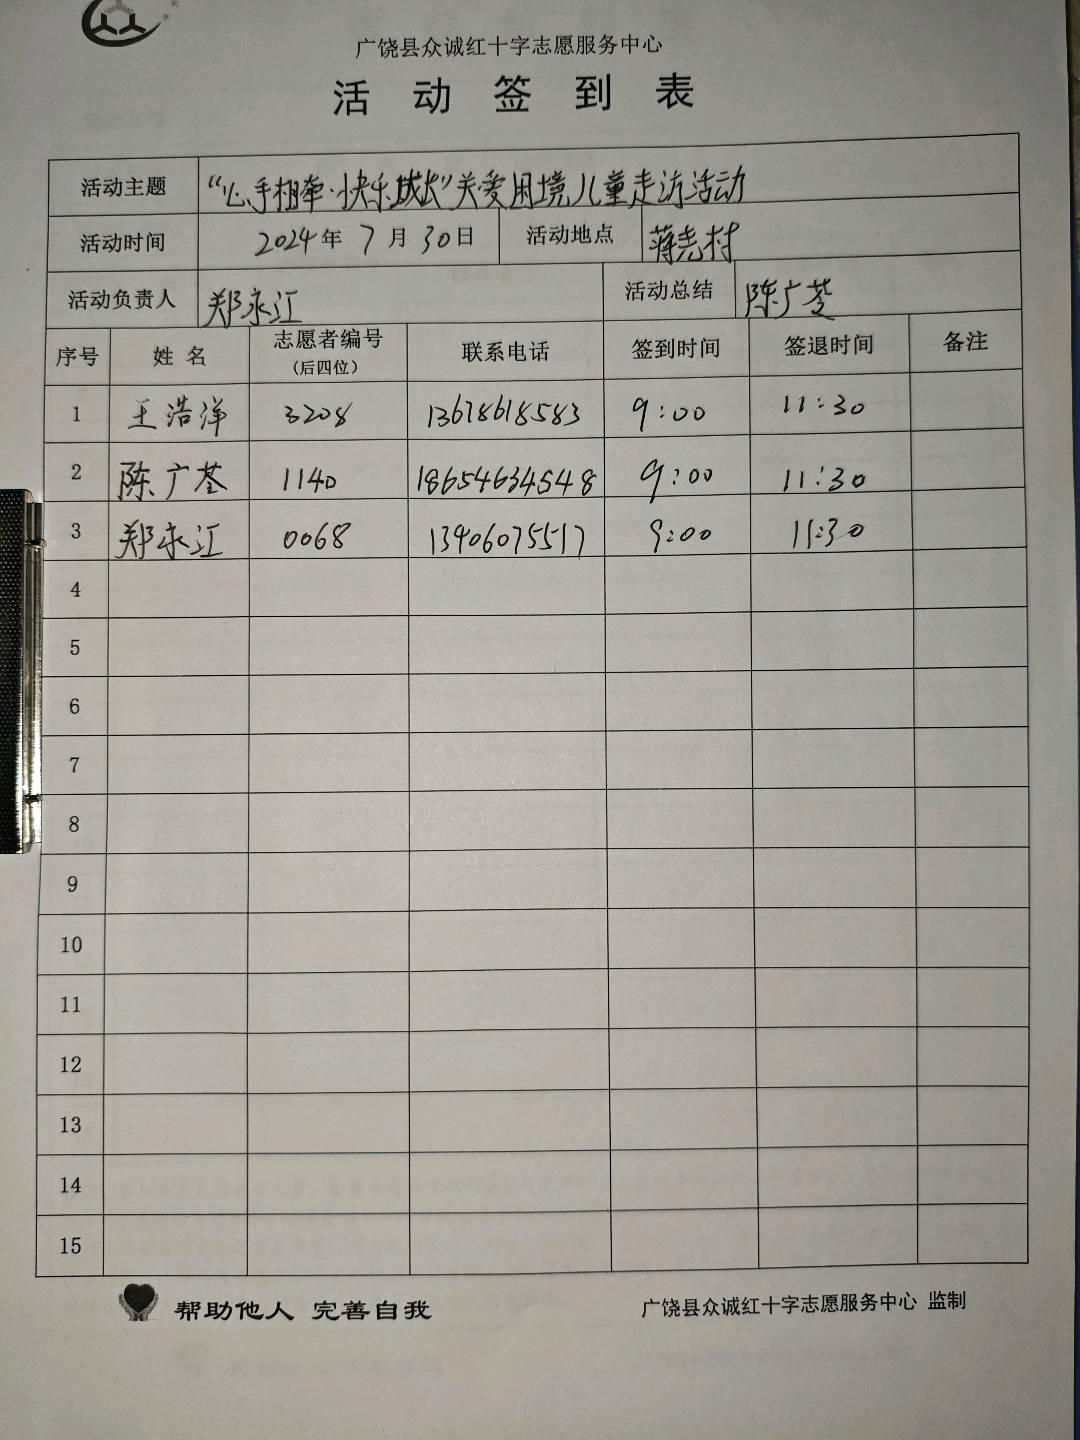 广饶县众诚红十字志愿服务中心
活动签到表
活动主题 “心手相牵·快乐成长”关爱困境儿童走访活动
活动时间 2024年7月30日 活动地点 蒋尧村
活动负责人 郑永江 活动总结 陈广荃
序号 姓名 志愿者编号（后四位） 联系电话 签到时间 签退时间 备注
1 王浩洋 3208 13678618583 9:00 11:30
2 陈广荃 1140 18654634548 9:00 11:30
3 郑永江 0068 13406075517 9:00 11:30
4
5
6
7
8
9
10
11
12
13
14
15
帮助他人 完善自我 广饶县众诚红十字志愿服务中心 监制